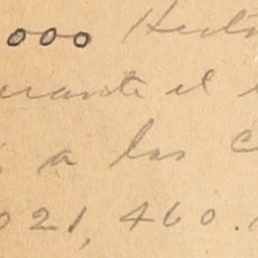 000 Hect
durante el
a las C
021,460.